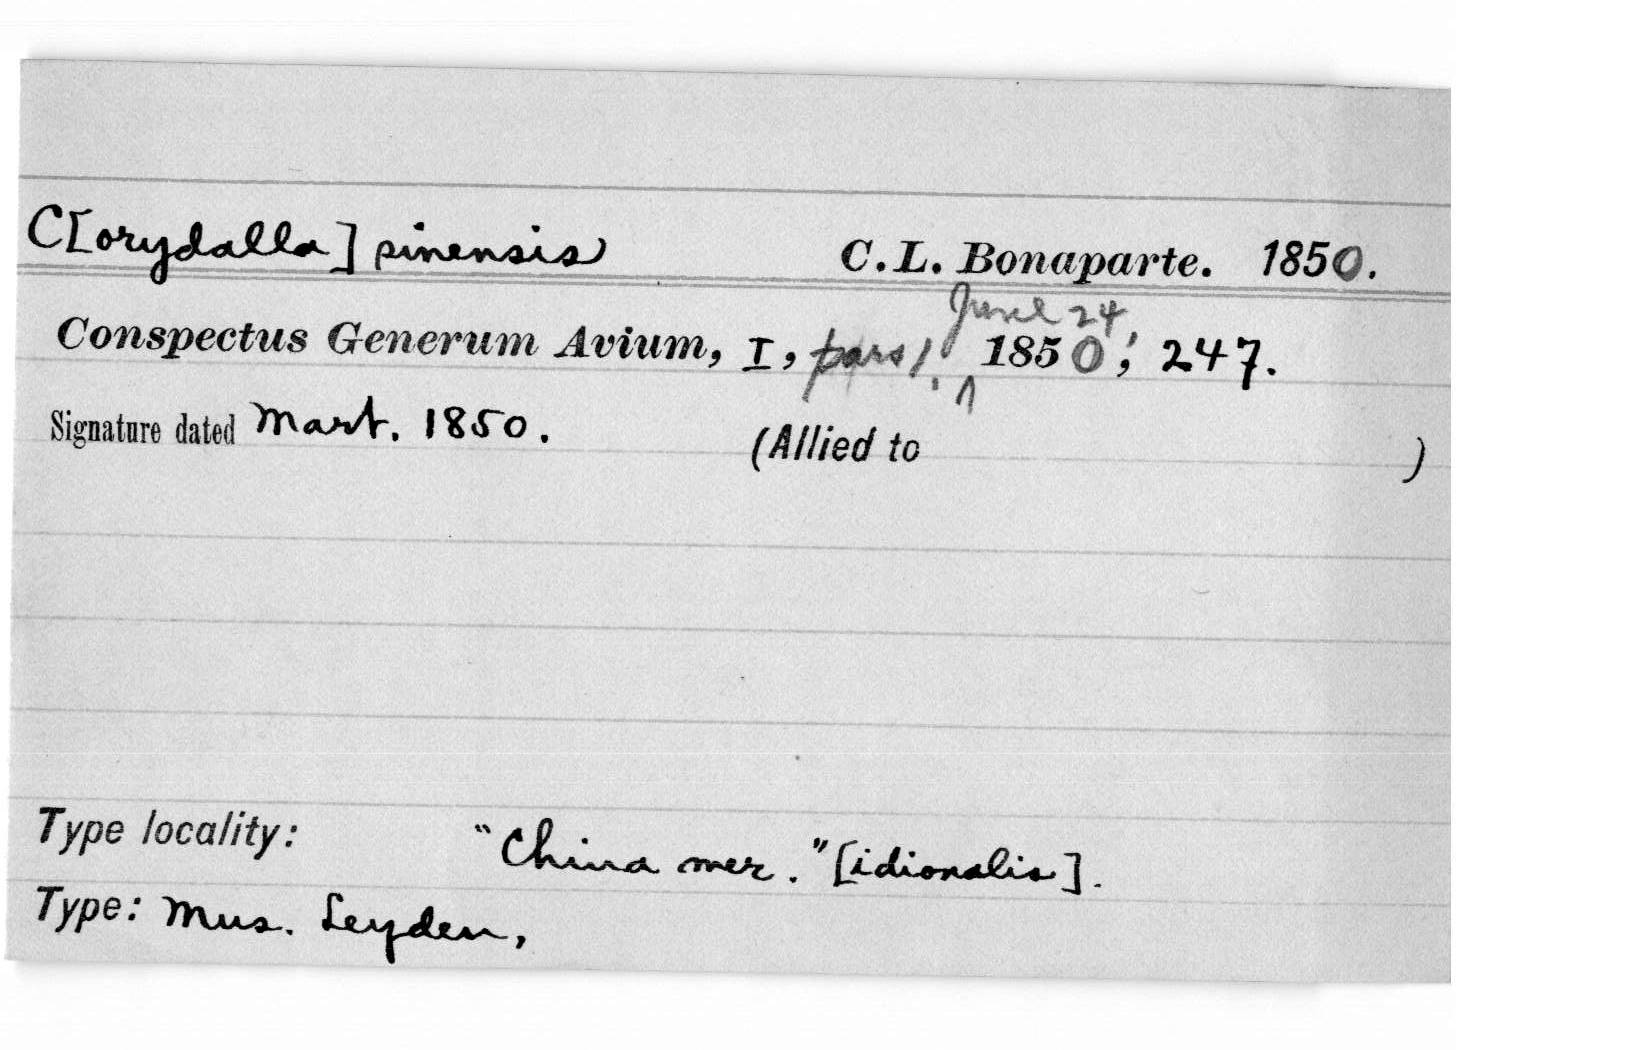 C[orydalla] sinensis C.L. Bonaparte. 1850.
June 24,
Conspectus Generum Avium, I, pars 1. ^ 1850; 247.
Signature dated Mart. 1850. (Allied to )
Type locality: "China mer."[idionalis].
Type: Mus. Leyden,